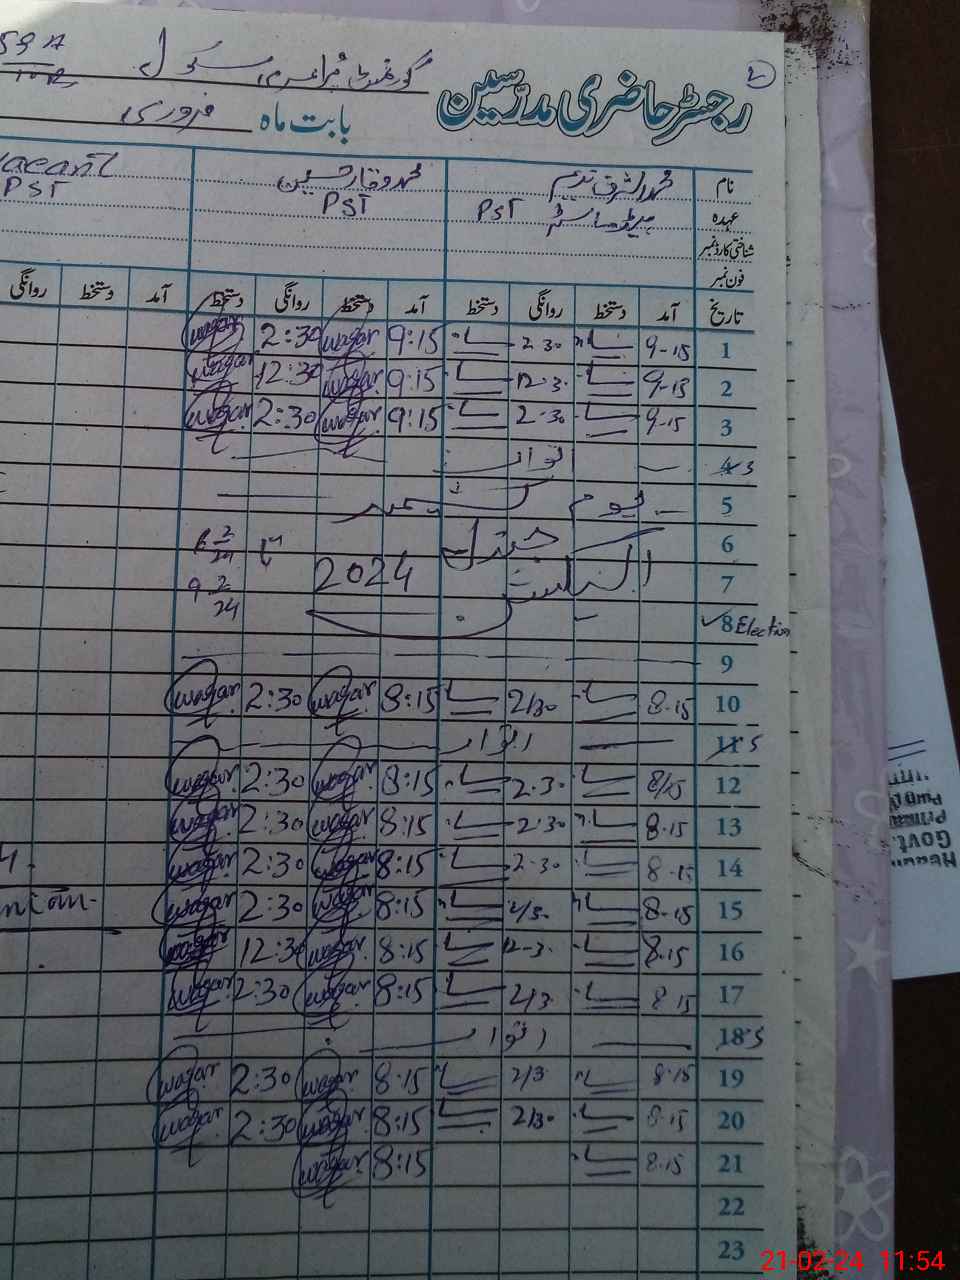 2
59 A
گورنمنٹ پرائمری سکول
رجسٹر حاضری مدرّسین
بابت ماہ فروری
نام محمد اشرف ندیم محمد وقار حسین vacant
عہدہ ہیڈ ماسٹر PST PST PST
شناختی کارڈ نمبر
فون نمبر
تاریخ آمد دستخط روانگی دستخط آمد دستخط روانگی دستخط آمد دستخط روانگی
1 9-15 2 30 9:15 waqar 2:30 waqar
2 9-15 12-3. 9:15 waqar 12:30 waqar
3 9-15 2-30 9:15 waqar 2:30 waqar
4 S اتوار
5 یوم
6 جنرل تا 6 2/24
7 الیکشن 2024 9 2/24
8 Election
9
10 8-15 2/30 8:15 waqar 2:30 waqar
11 S اتوار
12 8/15 2-30 8:15 waqar 2:30 waqar
13 8-15 2-30 8:15 waqar 2:30 waqar
14 8-15 2-30 8:15 waqar 2:30 waqar
15 8-15 8:15 waqar 2:30 waqar
16 8-15 12-3. 8:15 waqar 12:30 waqar
17 8 15 2/3 8:15 waqar 2:30 waqar
18 S اتوار
19 8-15 2/3 8:15 waqar 2:30 waqar
20 8-15 2/30 8:15 waqar 2:30 waqar
21 8-15 8:15 waqar
22
23
Govt.
21-02-24 11:54